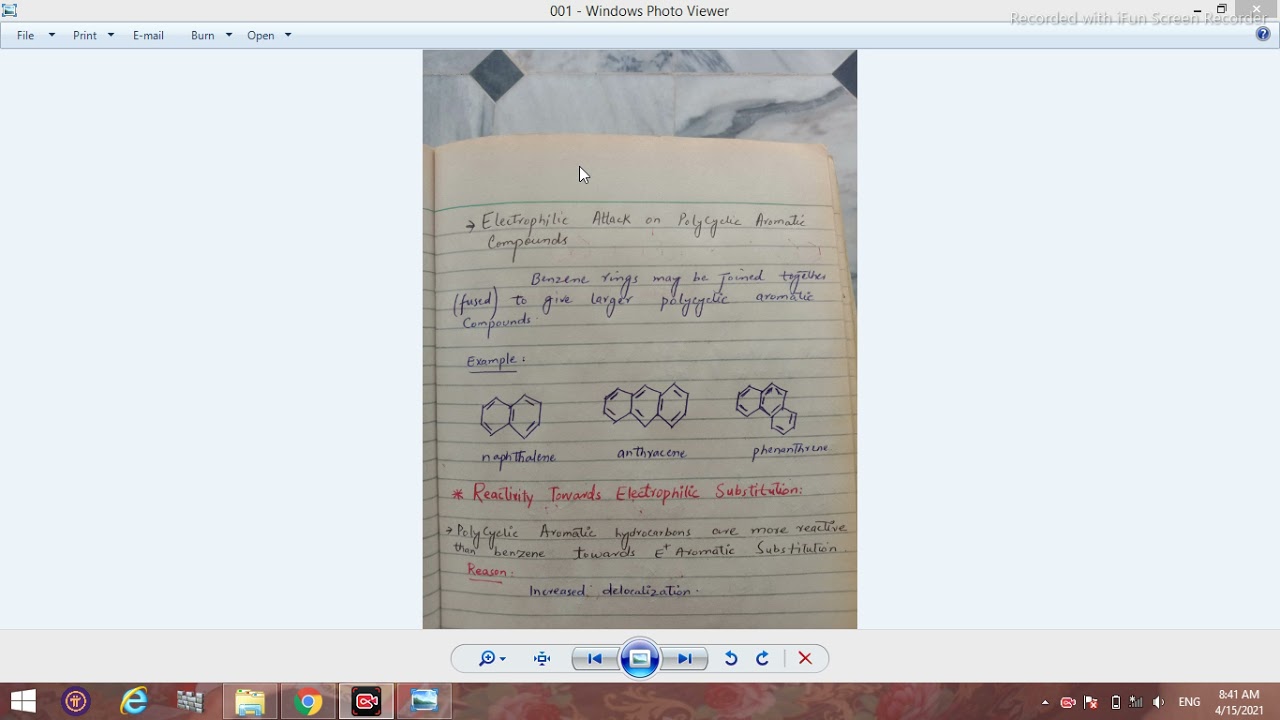 001 - Windows Photo Viewer
Recorded with iFun Screen Recorder
File Print E-mail Burn Open
→ Electrophilic Attack on Polycyclic Aromatic
Compounds
Benzene rings may be joined together
(fused) to give larger polycyclic aromatic
Compounds.
Example:
naphthalene anthracene phenanthrene
* Reactivity Towards Electrophilic Substitution:
→ Polycyclic Aromatic hydrocarbons are more reactive
than benzene towards E+ Aromatic Substitution.
Reason:
Increased delocalization.
ENG
8:41 AM
4/15/2021